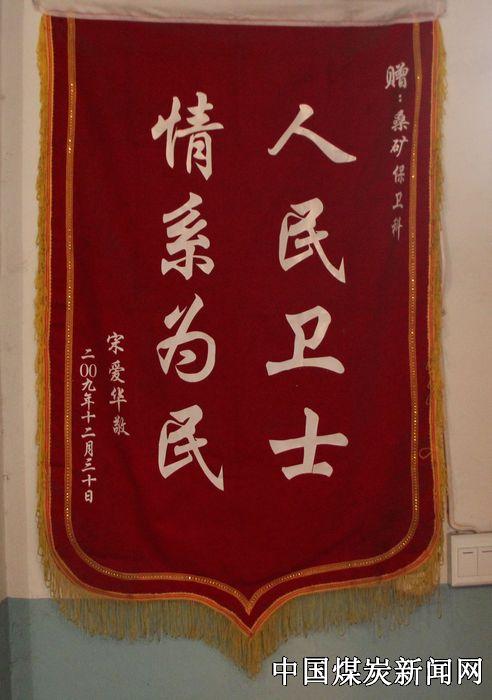 赠：桑矿保卫科
人民卫士
情系为民
宋爱华敬
二00九年十二月三十日
中国煤炭新闻网